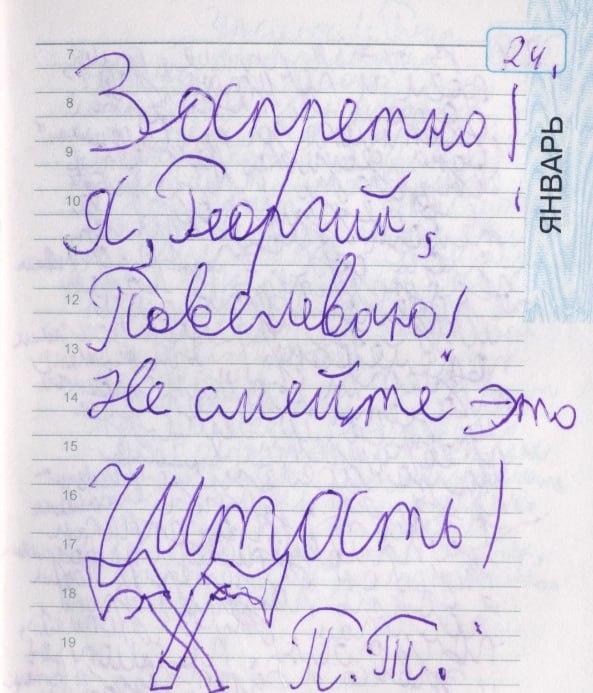 24.
ЯНВАРЬ
7
8
9
10
12
13
14
15
16
17
18
19
Запретно!
Я, Георгий,
Повелеваю!
Не смейте это
Читость!
П.Т.